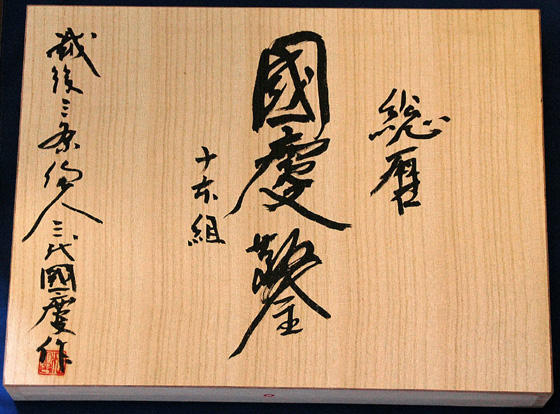 総磨
國慶鑿
十本組
越後三条住人三代國慶作